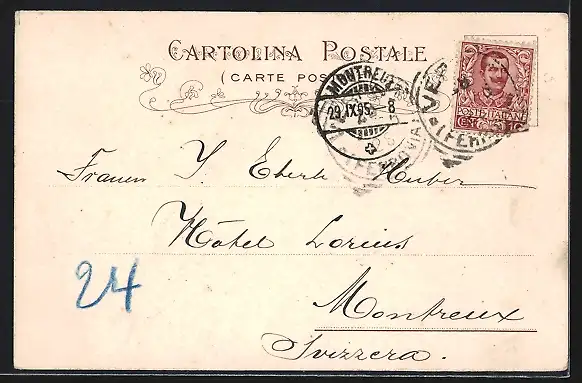 CARTOLINA POSTALE
(CARTE POS
MONTREUX
29.IX.95.-8
FERROVIA
POSTE ITALIANE
Frauen J. Eberle Huber
Hôtel Lorius
24
Montreux
Svizzera.